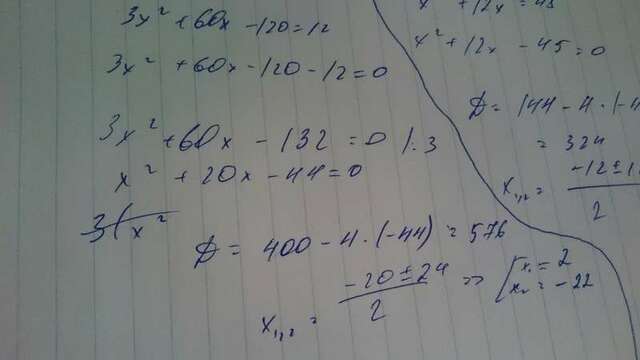 3x² + 60x - 120 = 12
3x² + 60x - 120 - 12 = 0
3x² + 60x - 132 = 0 |: 3
x² + 20x - 44 = 0
3(x²
D = 400 - 4 · (-44) = 576
x₁,₂ = (-20 ± 24)/2 => [x₁ = 2
x₂ = -22
x² + 12x = 45
x² + 12x - 45 = 0
D = 144 - 4 · (-4
= 324
x₁,₂ = (-12 ± 1)/2